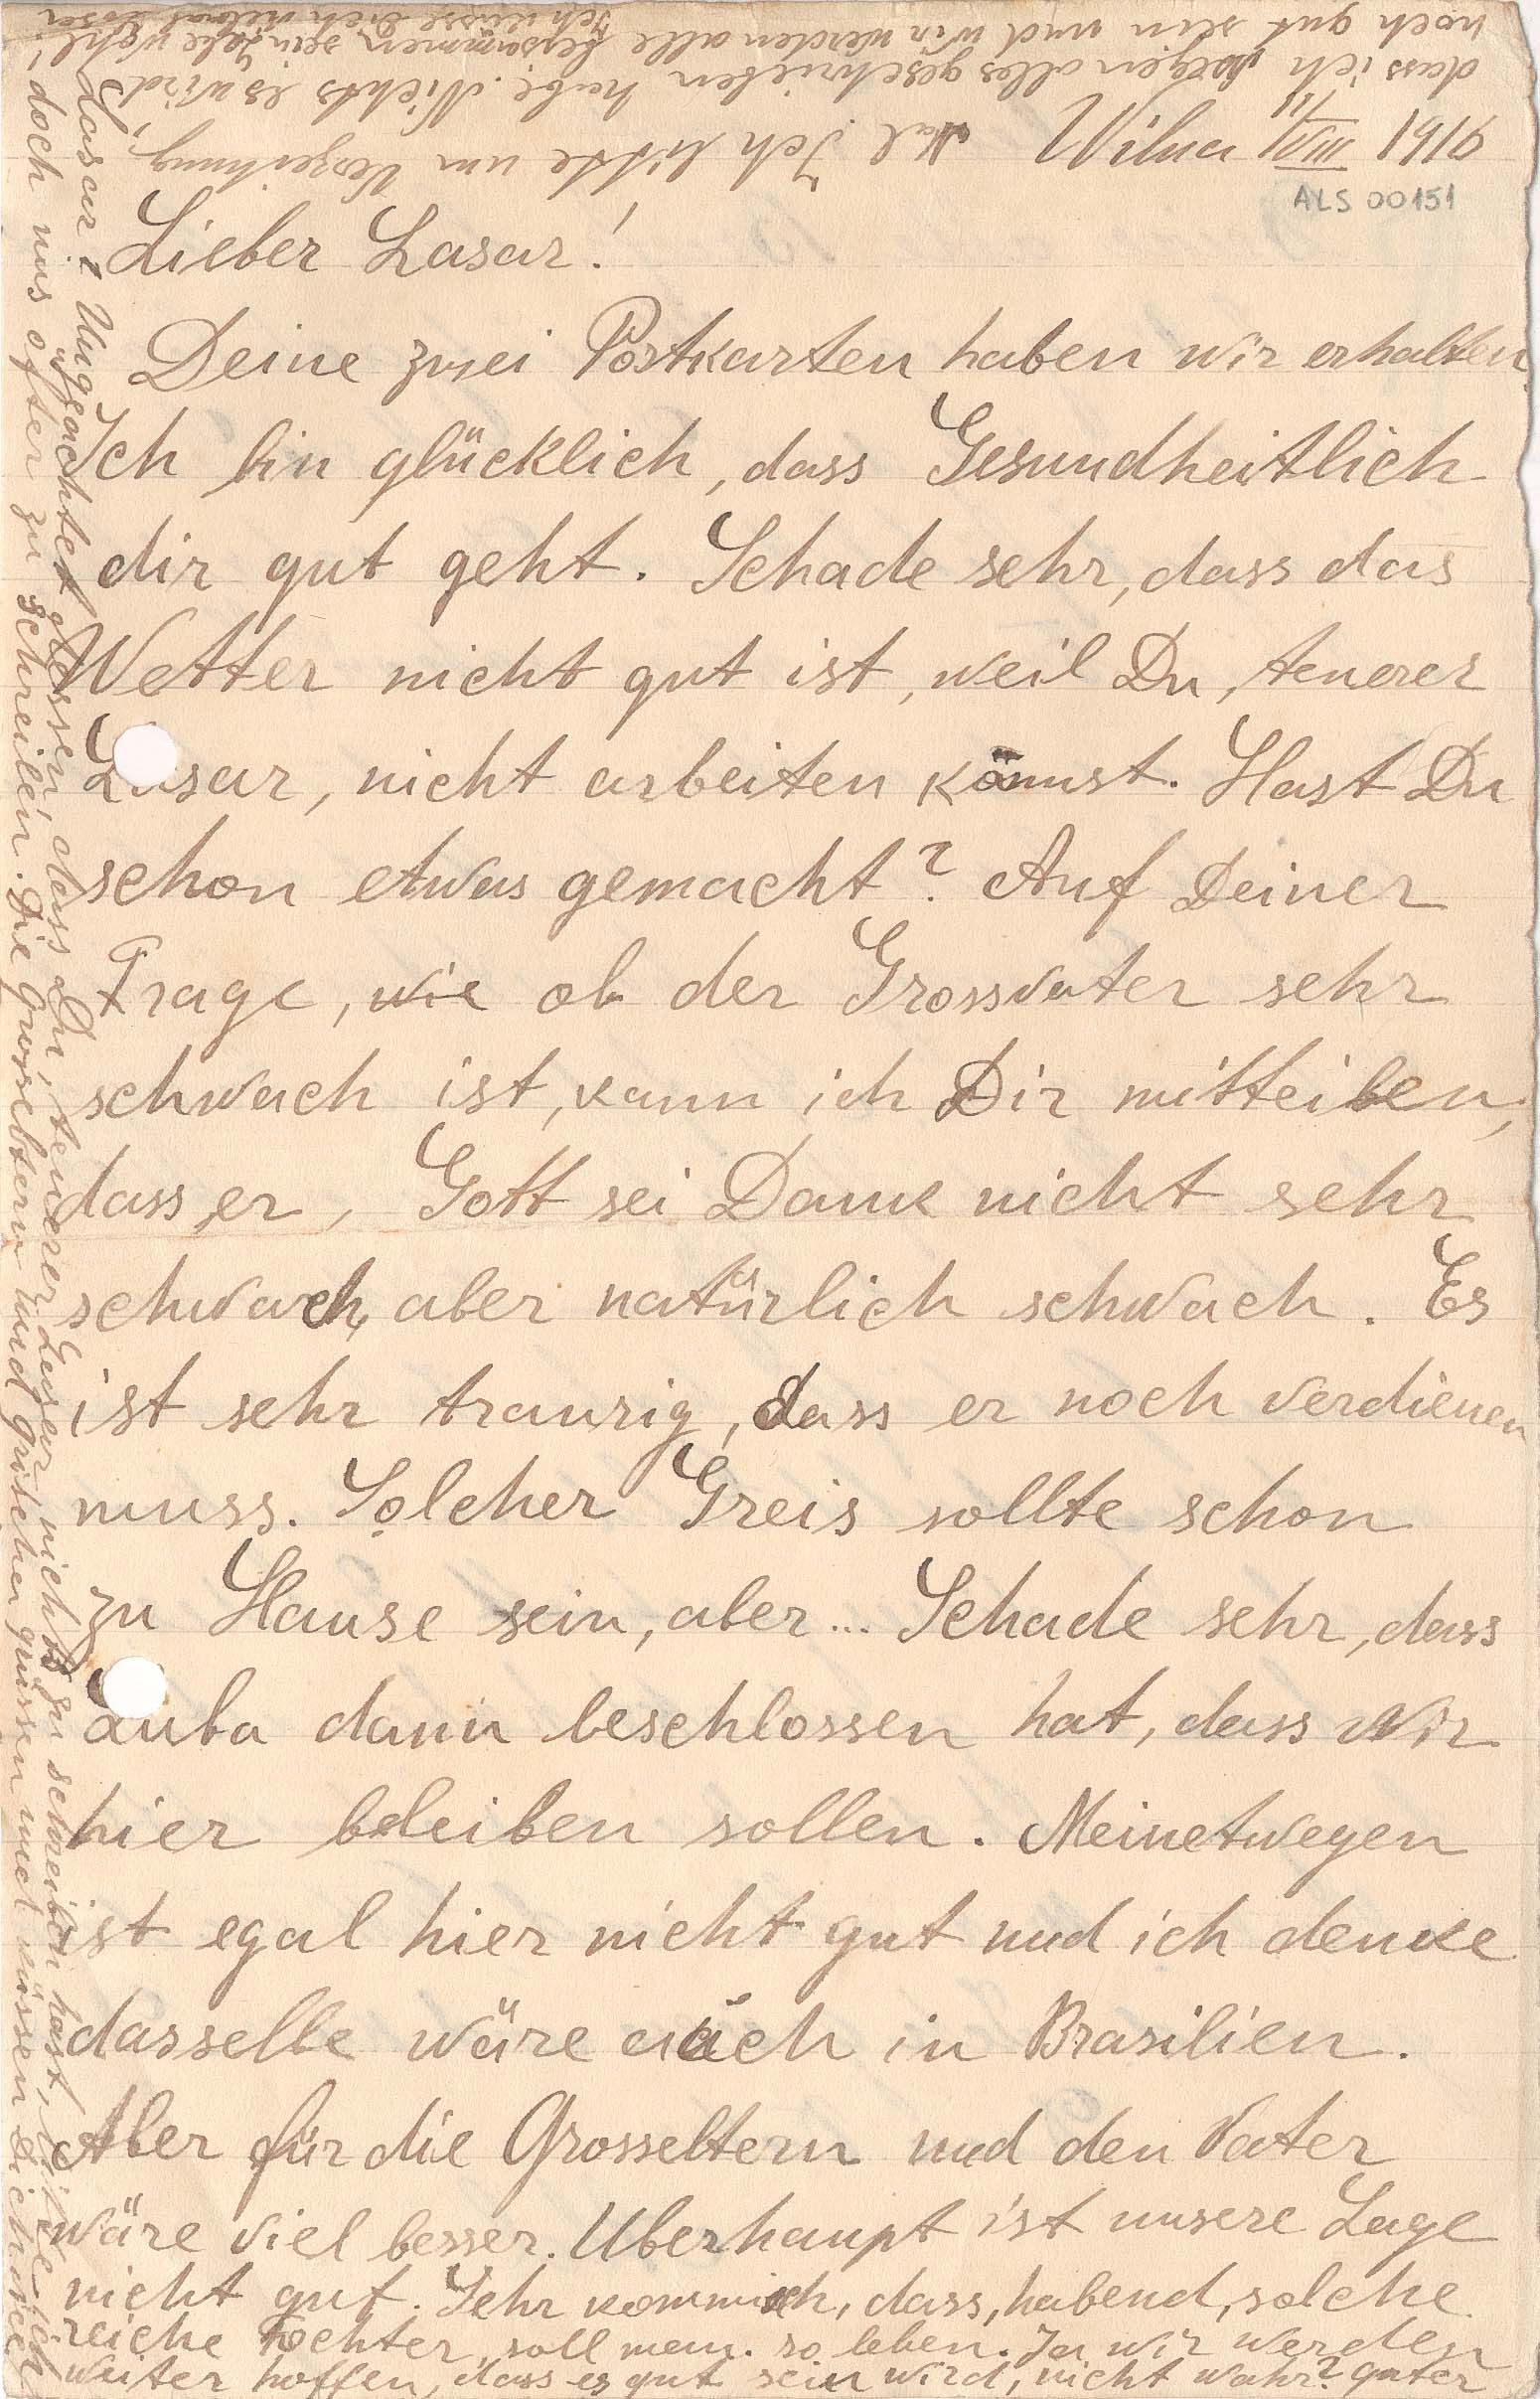 Wilna 11/VIII 1916
ALS 00151
Lieber Lasar!
Deine zwei Postkarten haben wir erhalten.
Ich bin glücklich, dass Gesundheitlich
dir gut geht. Schade sehr, dass das
Wetter nicht gut ist, weil Du, teuerer
Lasar, nicht arbeiten könnst. Hast Du
schon etwas gemacht? Auf Deiner
Frage, wie ob der Grossvater sehr
schwach ist, kann ich Dir mitteilen,
dass er, Gott sei Dank nicht sehr
schwach, aber natürlich schwach. Es
ist sehr traurig, dass er noch verdienen
muss. Solcher Greis sollte schon
zu Hause sein, aber... Schade sehr, dass
Luba dann beschlossen hat, dass wir
hier bleiben sollen. Meinetwegen
ist egal hier nicht gut und ich denke
dasselbe wäre auch in Brasilien.
Aber für die Grosseltern und den Vater
wäre viel besser. Uberhaupt ist unsere Lage
nicht gut. Sehr kommisch, dass, habend, solche
reiche Tochter, soll man so leben. Ja wir werden
weiter hoffen, dass es gut sein wird, nicht wahr? guter
Lasar? Ungeachtet dessen, dass Du, teuerer Lasar nichts zu schreiben hast, bitte ich
doch uns öfter zu schreiben. Die Grosseltern und grüssen und küssen Dich
Ich bitte um Verzeihung,
dass ich alles geschrieben habe. Nichts es wird
noch gut sein und wir werden alle zusammen sein. Lebe wohl!
Ich küsse Dich vielmal